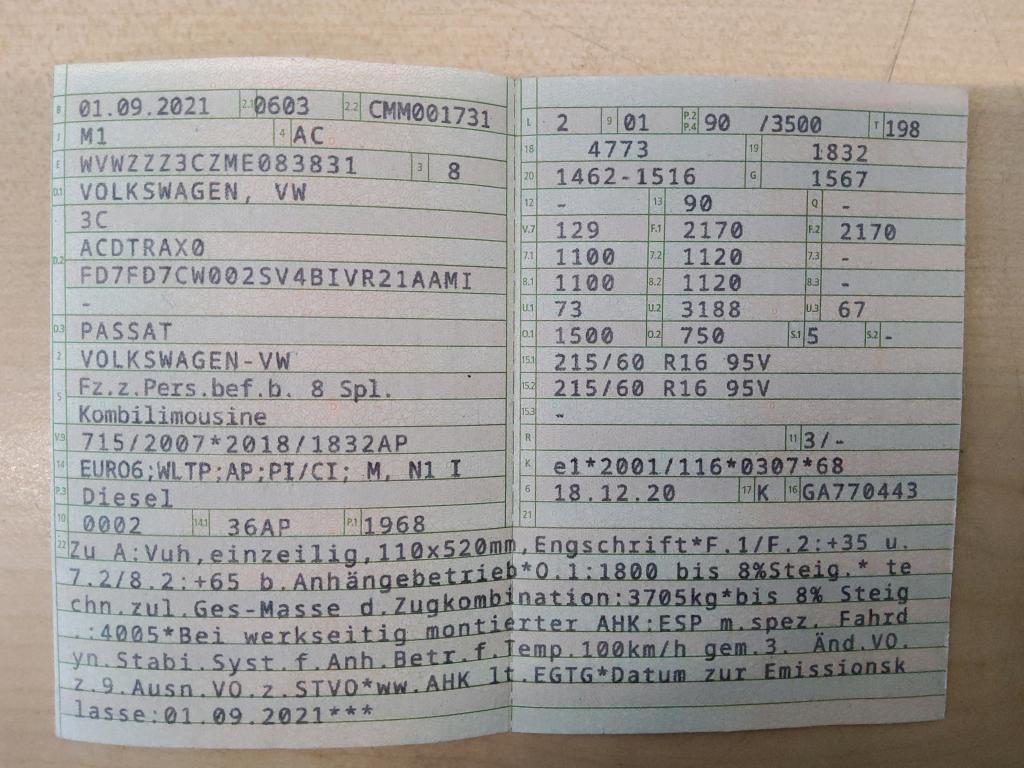 B 01.09.2021 2.1 0603 2.2 CMM001731
J M1 4 AC
E WVWZZZ3CZME083831 3 8
D.1 VOLKSWAGEN, VW
3C
D.2 ACDTRAX0
FD7FD7CW002SV4BIVR21AAMI
-
D.3 PASSAT
2 VOLKSWAGEN-VW
5 Fz.z.Pers.bef.b. 8 Spl.
Kombilimousine
V.9 715/2007*2018/1832AP
14 EURO6;WLTP;AP;PI/CI; M, N1 I
P.3 Diesel
10 0002 14.1 36AP P.1 1968
L 2 9 01 P.2 P.4 90 /3500 T 198
18 4773 19 1832
20 1462-1516 G 1567
12 - 13 90 Q -
V.7 129 F.1 2170 F.2 2170
7.1 1100 7.2 1120 7.3 -
8.1 1100 8.2 1120 8.3 -
U.1 73 U.2 3188 U.3 67
O.1 1500 O.2 750 S.1 5 S.2 -
15.1 215/60 R16 95V
15.2 215/60 R16 95V
15.3 -
R 11 3/-
K e1*2001/116*0307*68
6 18.12.20 17 K 16 GA770443
21
22 Zu A:Vuh,einzeilig,110x520mm,Engschrift*F.1/F.2:+35 u.
7.2/8.2:+65 b.Anhängebetrieb*O.1:1800 bis 8%Steig.* te
chn.zul.Ges-Masse d.Zugkombination:3705kg*bis 8% Steig
.:4005*Bei werkseitig montierter AHK:ESP m.spez. Fahrd
yn.Stabi.Syst.f.Anh.Betr.f.Temp.100km/h gem.3. Änd.VO.
z.9.Ausn.VO.z.STVO*ww.AHK lt.EGTG*Datum zur Emissionsk
lasse:01.09.2021***